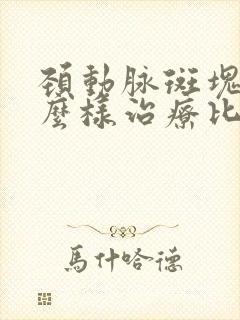 頸動脉斑塊
麼樣治療比
馬什哈德